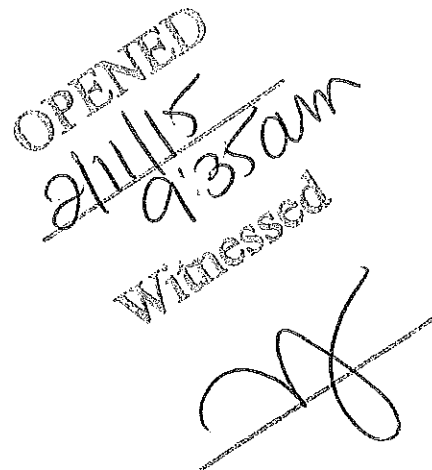 OPENED
2/11/15
9:35am
Witnessed